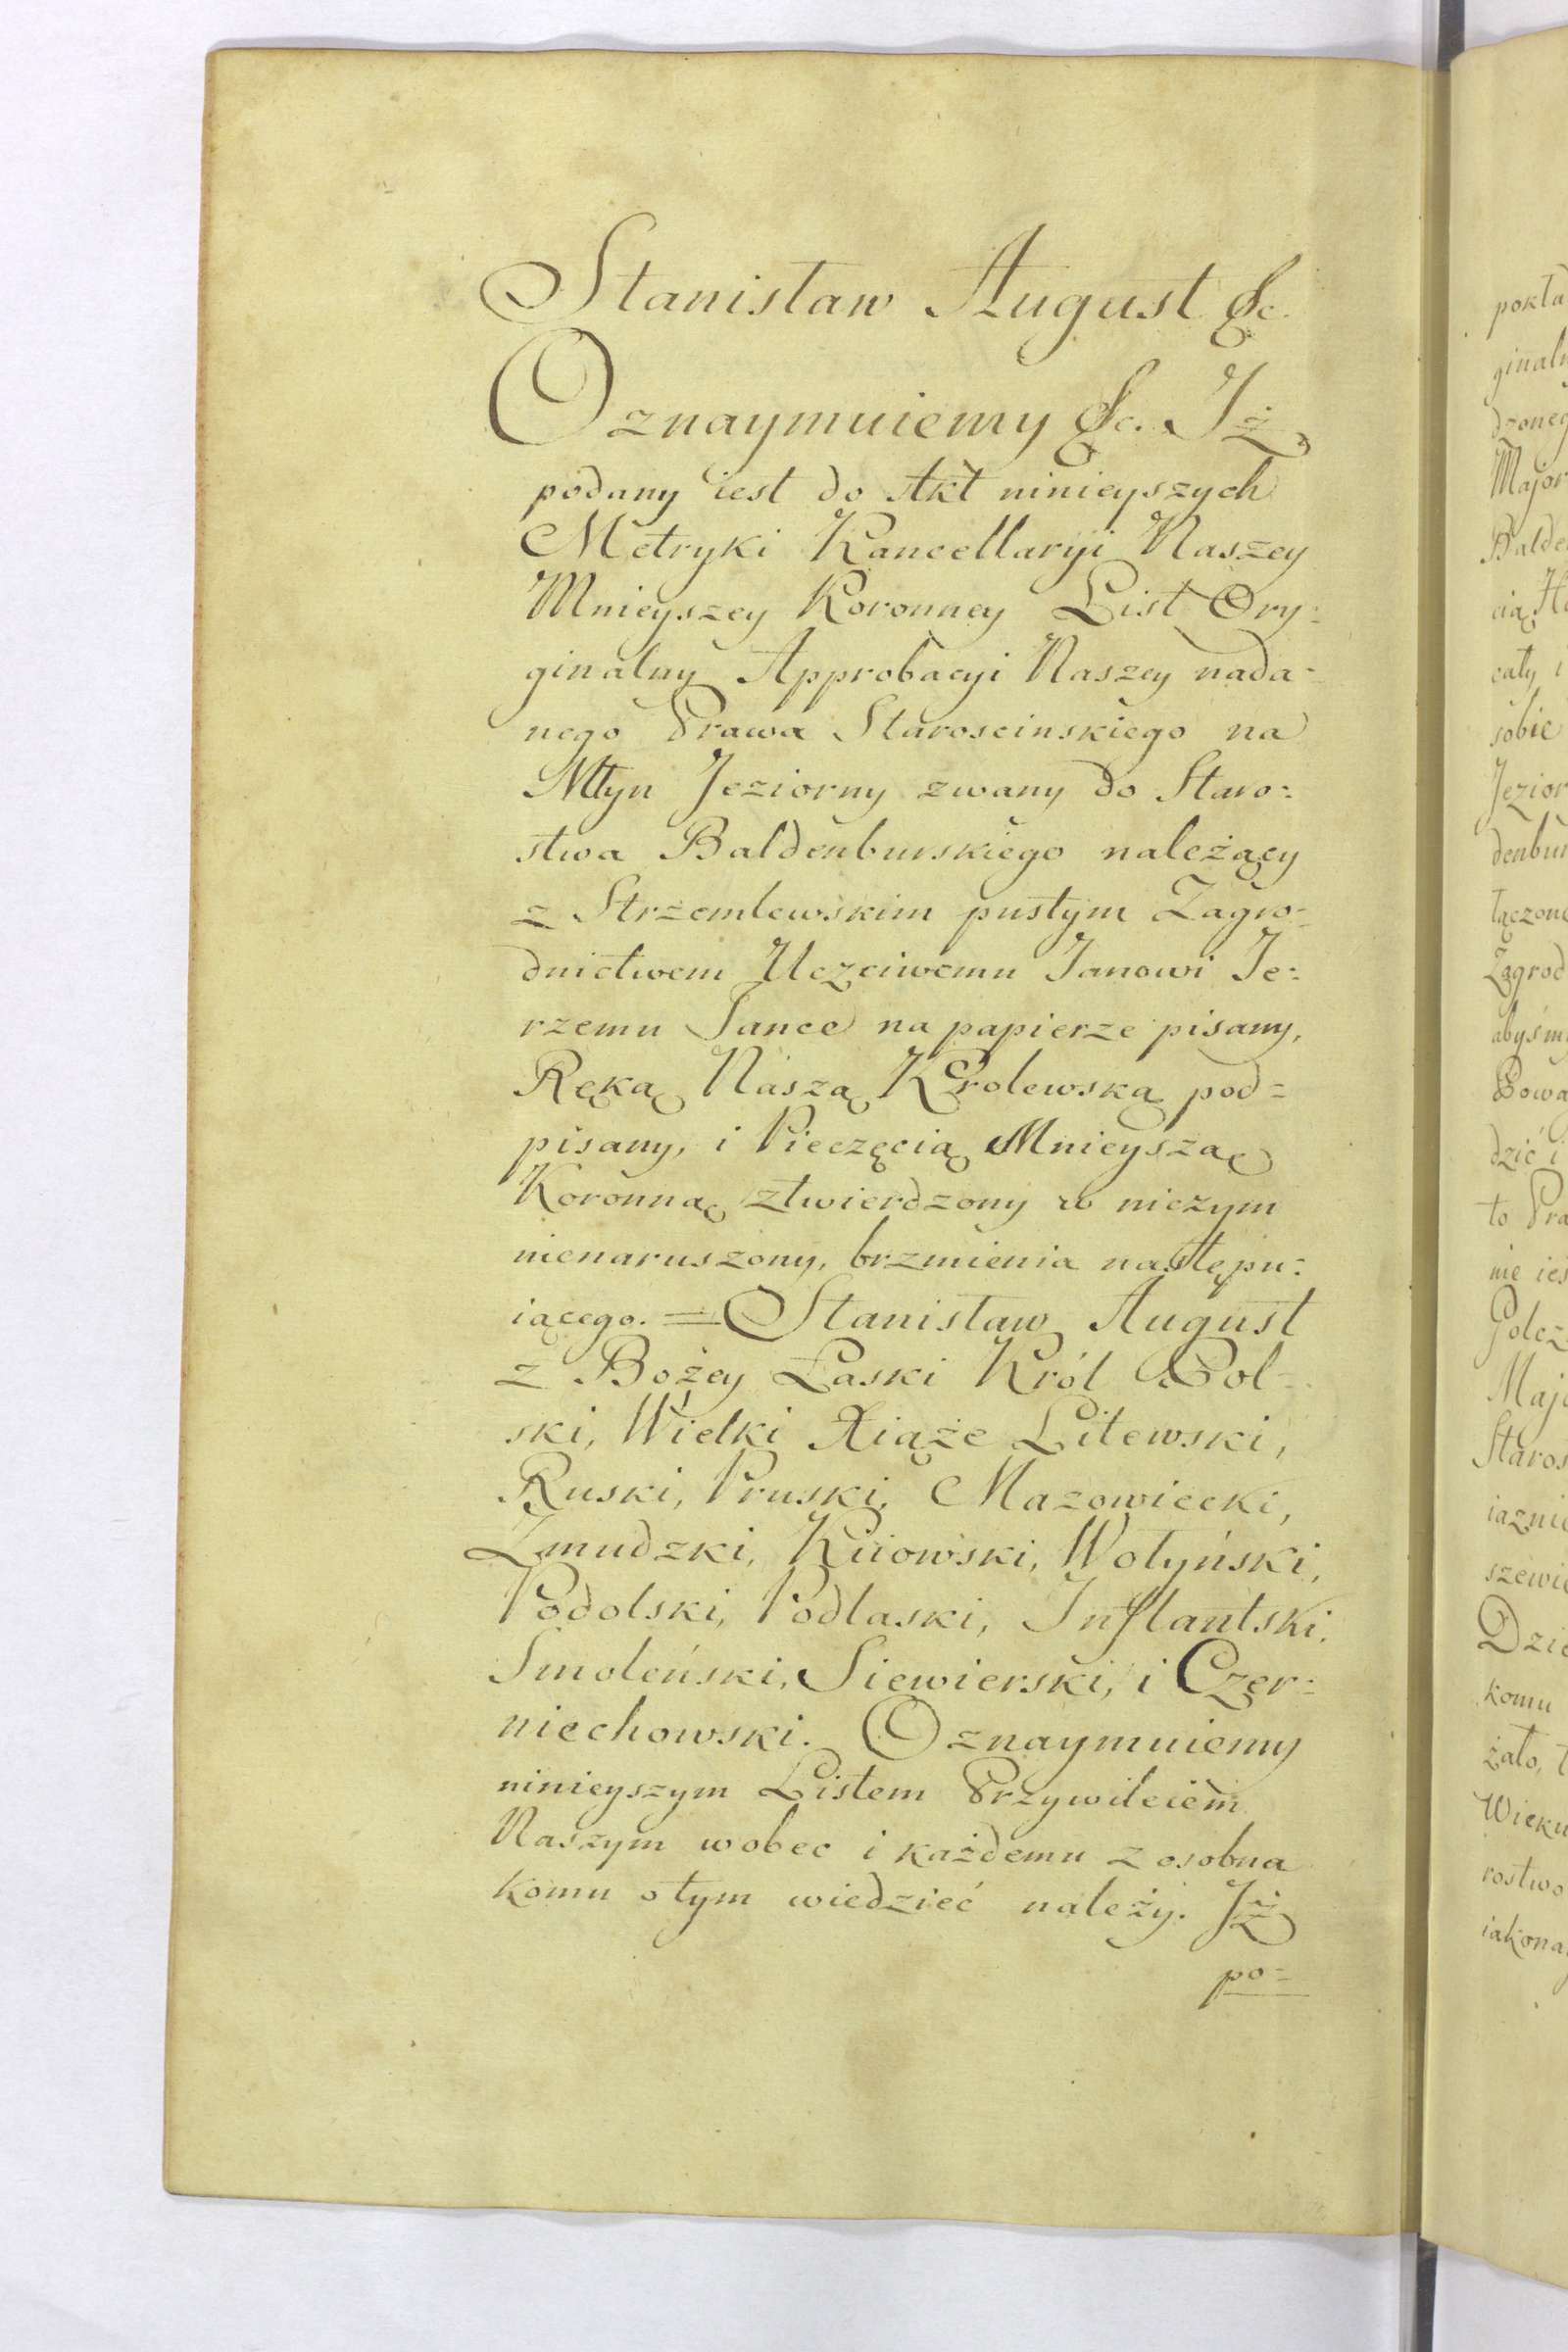 Stanisław August &c.
Oznaymuiemy &c. Iż
podany iest do Akt ninieyszych
Metryki Kancellaryi Naszey
Mnieyszey Koronney List Ory=
ginalny Approbacyi Naszey nada=
nego Prawa Staroscinskiego na
Młyn Jeziorny zwany do Staro=
stwa Baldenburskiego należący
z Strzemlewskim pustym Zagro=
dnictwem Uczciwemu Janowi Je=
rzemu Jance na papierze pisany,
Ręką Naszą Krolewską pod=
pisany, i Pieczęcią Mnieyszą
Koronną ztwierdzony w niczym
nienaruszony, brzmienia następu=
iącego. = Stanisław August
z Bożey Łaski Król Pol=
ski, Wielki Xiąże Litewski,
Ruski, Pruski, Mazowiecki,
Zmudzki, Kiiowski, Wołyński,
Podolski, Podlaski, Inflantski,
Smoleński, Siewierski, i Czer=
niechowski. Oznaymuiemy
ninieyszym Listem Przywileiem
Naszym wobec i każdemu z osobna
komu o tym wiedzieć należy. Iż
po=
pokła
ginaln
dzoneg
Major
Balde
cią
cały i
sobie
Jezior
denbur
łączone
Zagrod
abyśm
Powa
dzić i
to Pra
nie ies
Golcz
Majo
Staros
iaznie
szewic
Dzie
komu
żało, t
Wieku
rostwo
iakona